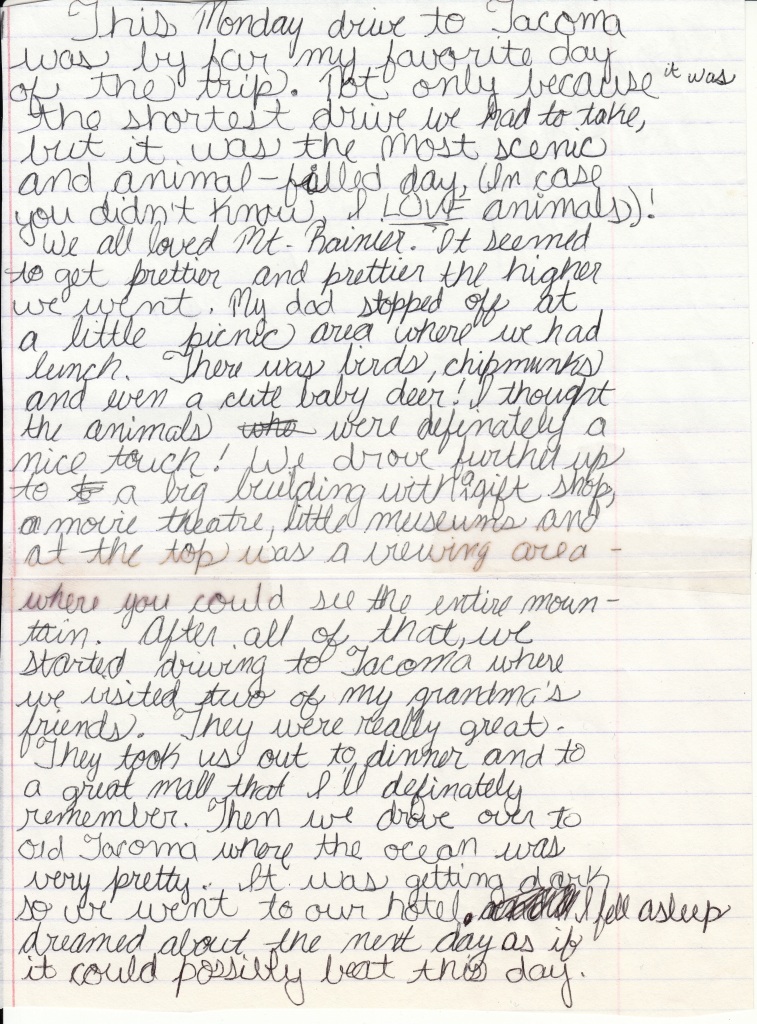 This Monday drive to Tacoma
was by far my favorite day
of the trip. Not only because it was
the shortest drive we had to take,
but it was the most scenic
and animal-filled day, (In case
you didn't know, I LOVE animals)!
We all loved Mt. Rainier. It seemed
to get prettier and prettier the higher
we went. My dad stopped off at
a little picnic area where we had
lunch. There was birds, chipmunks
and even a cute baby deer! I thought
the animals who were definately a
nice touch! We drove further up
to to a big building with a gift shop,
a movie theatre, little museums and
at the top was a viewing area -
where you could see the entire moun-
tain. After all of that, we
started driving to Tacoma where
we visited two of my grandma's
friends. They were really great.
They took us out to dinner and to
a great mall that I'll definately
remember. Then we drove over to
Old Tacoma where the ocean was
very pretty. It was getting dark
so we went to our hotel. I fell asleep
dreamed about the next day as if
it could possilty beat this day.